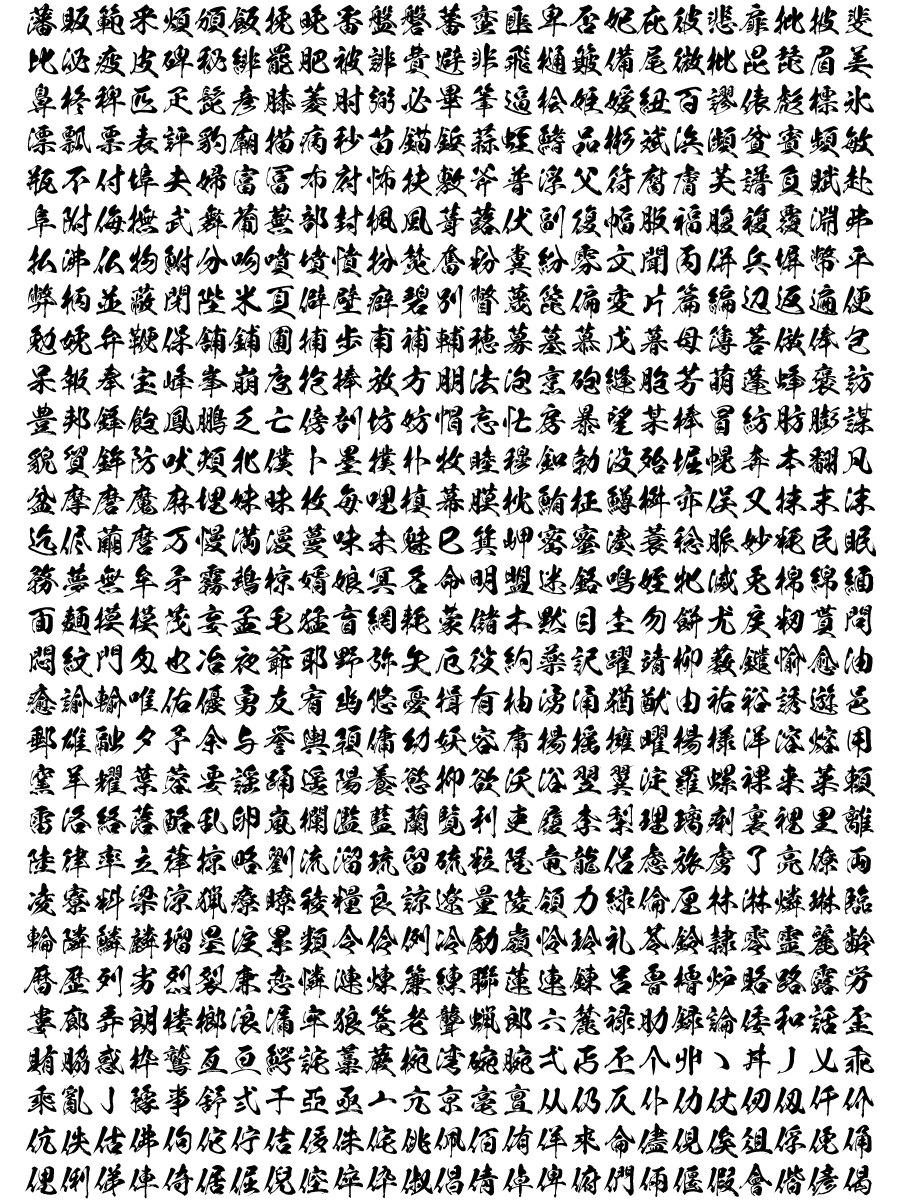 藩販範釆煩頒飯挽晩番盤磐蕃蛮匪卑否妃庇彼悲扉批披斐
比泌疲皮碑秘緋罷肥被誹費避非飛樋簸備尾微枇毘琵眉美
鼻柊稗匹疋髭彦膝菱肘弼必畢筆逼桧姫媛紐百謬俵彪標氷
漂瓢票表評豹廟描病秒苗錨鋲蒜蛭鰭品彬斌浜瀕貧賓頻敏
瓶不付埠夫婦富冨布府怖扶敷斧普浮父符腐膚芙譜負賦赴
阜附侮撫武舞葡蕪部封楓風葺蕗伏副復幅服福腹複覆淵弗
払沸仏物鮒分吻噴墳憤扮焚奮粉糞紛雰文聞丙併兵塀幣平
弊柄並蔽閉陛米頁僻壁癖碧別瞥蔑箆偏変片篇編辺返遍便
勉娩弁鞭保舗鋪圃捕歩甫補輔穂募墓慕戊暮母簿菩倣俸包
呆報奉宝峰峯崩庖抱捧放方朋法泡烹砲縫胞芳萌蓬蜂褒訪
豊邦鋒飽鳳鵬乏亡傍剖坊妨帽忘忙房暴望某棒冒紡肪膨謀
貌貿鉾防吠頬北僕卜墨撲朴牧睦穆釦勃没殆堀幌奔本翻凡
盆摩磨魔麻埋妹昧枚毎哩槙幕膜枕鮪柾鱒桝亦俣又抹末沫
迄侭繭麿万慢満漫蔓味未魅巳箕岬密蜜湊蓑稔脈妙粍民眠
務夢無牟矛霧鵡椋婿娘冥名命明盟迷銘鳴姪牝滅免棉綿緬
面麺摸模茂妄孟毛猛盲網耗蒙儲木黙目杢勿餅尤戻籾貰問
悶紋門匁也冶夜爺耶野弥矢厄役約薬訳躍靖柳薮鑓愉愈油
癒諭輸唯佑優勇友宥幽悠憂揖有柚湧涌猶猷由祐裕誘遊邑
郵雄融夕予余与誉輿預傭幼妖容庸揚揺擁曜楊様洋溶熔用
窯羊耀葉蓉要謡踊遥陽養慾抑欲沃浴翌翼淀羅螺裸来莱頼
雷洛絡落酪乱卵嵐欄濫藍蘭覧利吏履李梨理璃痢裏裡里離
陸律率立葎掠略劉流溜琉留硫粒隆竜龍侶慮旅虜了亮僚両
凌寮料梁涼猟療瞭稜糧良諒遼量陵領力緑倫厘林淋燐琳臨
輪隣鱗麟瑠塁涙累類令伶例冷励嶺怜玲礼苓鈴隷零霊麗齢
暦歴列劣烈裂廉恋憐漣煉簾練聯蓮連錬呂魯櫓炉賂路露労
婁廊弄朗楼榔浪漏牢狼篭老聾蝋郎六麓禄肋録論倭和話歪
賄脇惑枠鷲亙亘鰐詫藁蕨椀湾碗腕弌丐丕个丱丶丼丿乂乖
乘亂亅豫亊舒弍于亞亟亠亢亰亳亶从仍仄仆仂仗仞仭仟价
伉佚估佛佝佗佇佶侈侏侘佻佩佰侑佯來侖儘俔俟俎俘俛俑
俚俐俤俥倚倨倔倪倥倅伜俶倡倩倬俾俯們倆偃假會偕偐偈